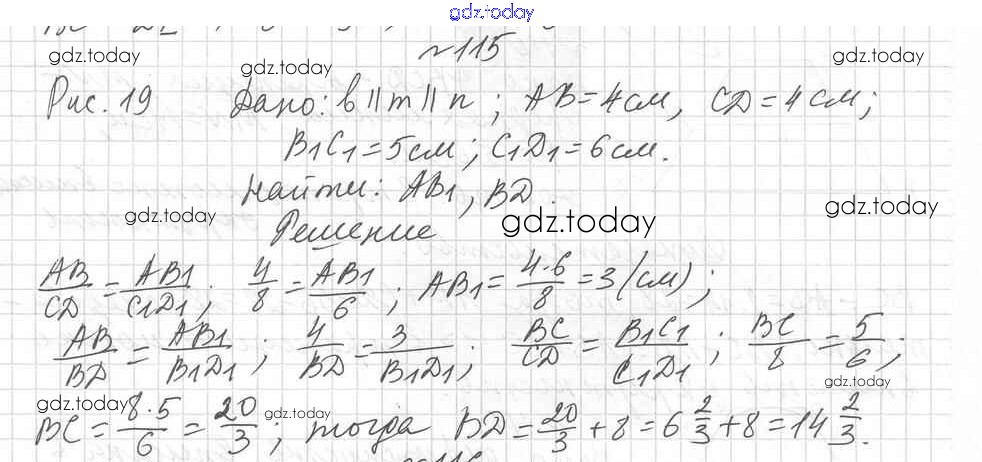 gdz.today
№115
gdz.today gdz.today gdz.today
Рис. 19 Дано: b || m || n ; AB = 4 см, CD = 4 см;
B1C1 = 5 см ; C1D1 = 6 см.
Найти: AB1, BD.
gdz.today gdz.today gdz.today
Решение
AB/CD = AB1/C1D1 ; 4/8 = AB1/6 ; AB1 = 4·6/8 = 3 (см) ;
AB/BD = AB1/B1D1 ; 4/BD = 3/B1D1 ; BC/CD = B1C1/C1D1 ; BC/8 = 5/6 ;
gdz.today gdz.today gdz.today
BC = 8·5/6 = 20/3 ; тогда BD = 20/3 + 8 = 6 2/3 + 8 = 14 2/3.